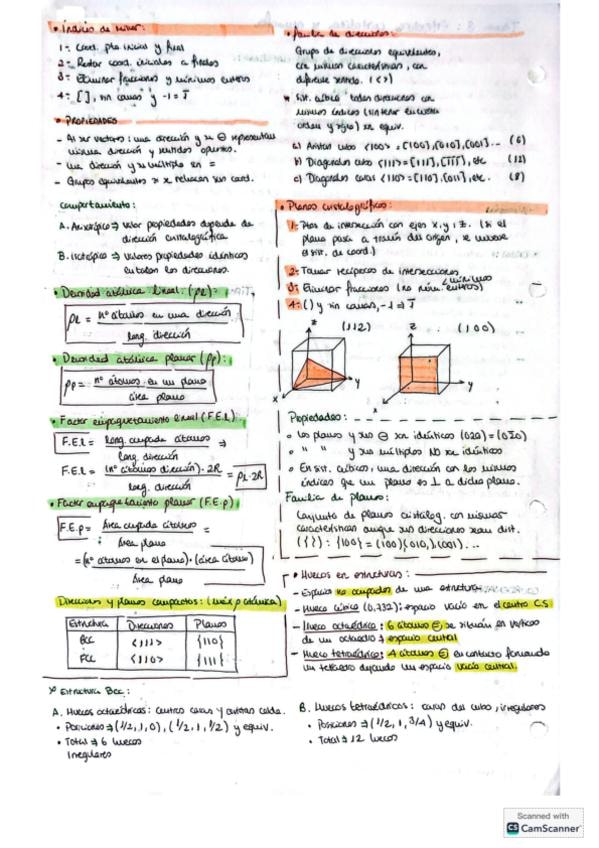 • Índices de Miller:
1:- Coord. pto inicial y final
2:- Restar coord. iniciales a finales
3:- Eliminar fracciones y mínimos enteros
4:- [ ], sin comas y -1 = 1̅
• PROPIEDADES
- Al ser vectores: una dirección y su ⊖ representan
misma dirección y sentidos opuestos.
- una dirección y su múltiplo son =
- Grupos equivalentes si se relacionan sus coord.
Comportamiento:
A. Anisótropico ⇒ valor propiedades depende de
dirección cristalográfica
B. Isotrópico ⇒ valores propiedades idénticos
en todas las direcciones.
• Densidad atómica lineal: (ρL):
ρL = nº átomos en una dirección / long. dirección
• Densidad atómica planar (ρp):
ρp = nº átomos en un plano / área plano
• Factor empaquetamiento lineal (F.E.l):
F.E.l = long. ocupada átomos / long. dirección ⇒
F.E.l = (nº átomos dirección)·2R / long. dirección = ρL·2R
• Factor empaquetamiento planar (F.E.p):
F.E.p = Área ocupada átomos / área plano =
= (nº átomos en el plano)·(área átomo) / Área plano
Direcciones y planos compactos: (máx ρ atómica)
Estructura Direcciones Planos
BCC <111> {110}
FCC <110> {111}
• Familia de direcciones:
Grupo de direcciones equivalentes,
con mismas características, con
diferente sentido. (< >)
Sist. cúbico todas direcciones con
mismos índices (sin tener en cuenta
orden y signo) son equiv.
a) Aristas cubo <100> = [100], [010], [001]... (6)
b) Diagonales cubo <111> = [111], [1̅1̅1̅], etc (12)
c) Diagonales caras <110> = [110], [011], etc. (8)
• Planos cristalográficos:
1:- Ptos de intersección con ejes x, y, z. (si el
plano pasa a través del origen, se mueve
el sist. de coord.)
2:- Tomar recíprocos de intersecciones
3:- Eliminar fracciones (no núm. enteros) mínimos
4:- ( ) y sin comas, -1 ⇒ 1̅
z (112) z (100)
y y
x x
Propiedades:
• Los planos y sus ⊖ son idénticos (020) = (02̅0)
• " " y sus múltiplos NO son idénticos
• En sist. cúbicos, una dirección con los mismos
índices que un plano es ⊥ a dicho plano.
Familia de planos:
Conjunto de planos cristalog. con mismas
características aunque sus direcciones sean dist.
({ }): {100} = (100)(010),(001)...
• Huecos en estructuras:
- Espacios no ocupados de una estructura
- Hueco cúbico (0,732): espacio vacío en el centro C.S.
- Hueco octaédrico: 6 átomos se sitúan en vértices
de un octaedro y espacio central
- Hueco tetraédrico: 4 átomos en contacto formando
un tetraedro dejando un espacio vacío central.
* Estructura Bcc:
A. Huecos octaédricos: centro caras y aristas celda.
• Posiciones ⇒ (1/2, 1, 0), (1/2, 1, 1/2) y equiv.
• Total ⇒ 6 huecos
Irregulares
B. Huecos tetraédricos: caras del cubo, irregulares
• Posiciones ⇒ (1/2, 1, 3/4) y equiv.
• Total ⇒ 12 huecos
Scanned with
CS CamScanner